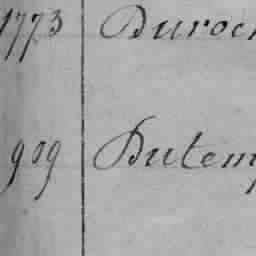 1773 Duroch
909 Dutemp